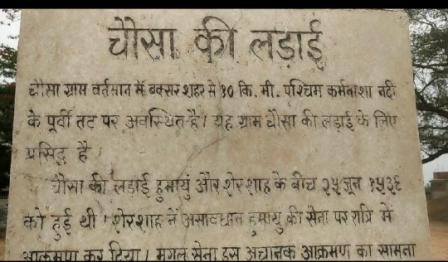 चौसा की लड़ाई
चौसा ग्राम वर्तमान में बक्सर शहर से १० कि. मी. पश्चिम कर्मनाशा नदी
के पूर्वी तट पर अवस्थित है। यह ग्राम चौसा की लड़ाई के लिए
प्रसिद्ध है।
चौसा की लड़ाई हुमायुं और शेरशाह के बीच २५ जून १५३९
को हुई थी। शेरशाह ने असावधान हुमायुं की सेना पर रात्रि में
आक्रमण कर दिया। मुगल सेना इस अचानक आक्रमण का सामना